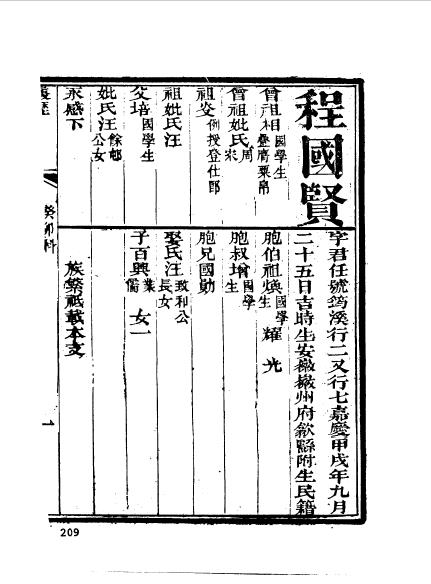 程國賢
字君任號筠溪行二又行七嘉慶甲戌年九月
二十五日吉時生安徽徽州府歙縣附生民籍
曾祖相國學生疊膺粟帛
曾祖妣氏周宋
祖姿例授登仕郎
祖妣氏汪
父培國學生
妣氏汪餘邨公女
永感下
胞伯祖煥國學生 耀 光
胞叔增國學生
胞兄國勛
娶氏汪致利公長女
子百興業儒 女一
族繁祗載本支
癸卯科
一
209